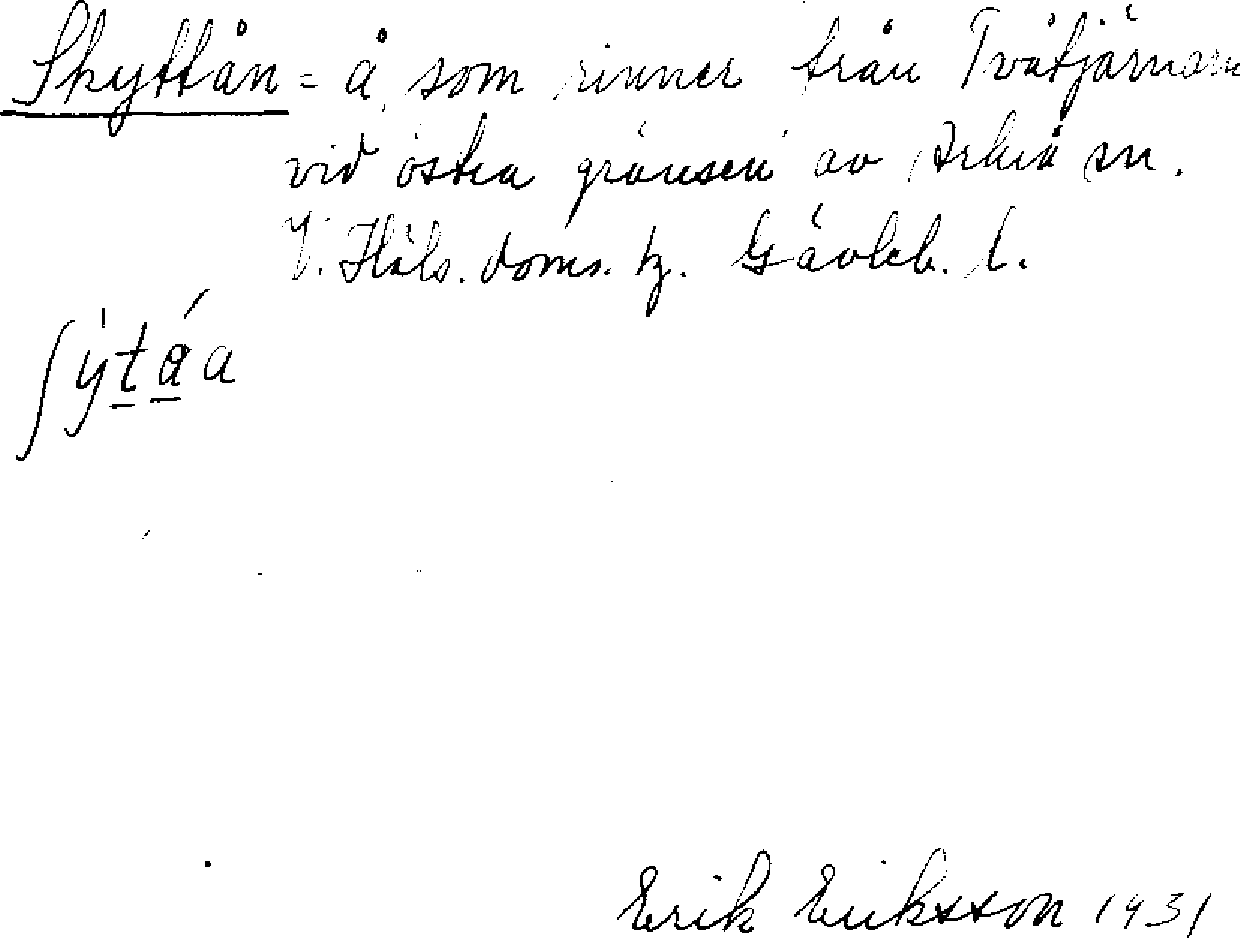 Skyttån = å, som rinner från Tvåtjärnarn
vid östra gränsen av Arbrå sn.
V. Häls. doms. tg. Gävleb. l.
ʃýt̲á̲a
Erik Eriksson 1931